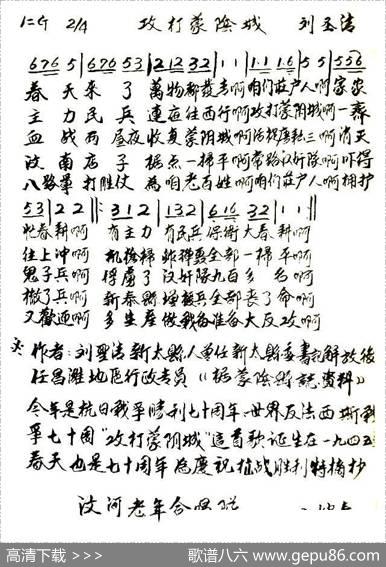 1=G 2/4 攻打蒙阴城 刘玉洁
676 5 | 676 53 | 212 32 | 1 1 | 1·1 1·6 | 5 5 | 556
春天来了 万物都发青啊 咱们庄户人啊 家家
主力民兵 连夜往西行啊 攻打蒙阴城啊 一齐
血战两昼夜 收复蒙阴城啊 三啊 消灭
汶南店子 据点一扫平啊 吓得
八路军 打胜仗 为咱老百姓啊 咱们庄户人啊 拥护
53 | 2 2 :‖: 312 | 132 | 6·16 32 | 1 1 :‖
忙春耕啊 有主力 有民兵 保卫大春耕啊
往上冲啊 机枪 炸弹 全部一扫平啊
鬼子兵啊 俘虏了 汉奸队九百多名啊
撤了兵啊 新泰县 全部丧了命啊
又欢迎啊 多生产 做战备 准备大反攻啊
作者：刘玉洁 新太县人 曾任新太县委书记 解放后
任昌潍地区行政专员《据蒙阴县志资料》
今年是抗日战争胜利七十周年 世界反法西斯战
争七十周 "攻打蒙阴城" 这首歌诞生在一九四五
春天 也是七十周年 为庆祝抗战胜利特摘抄
汶河老年合唱团
高清下载 >>> 歌谱八六 www.gepu86.com